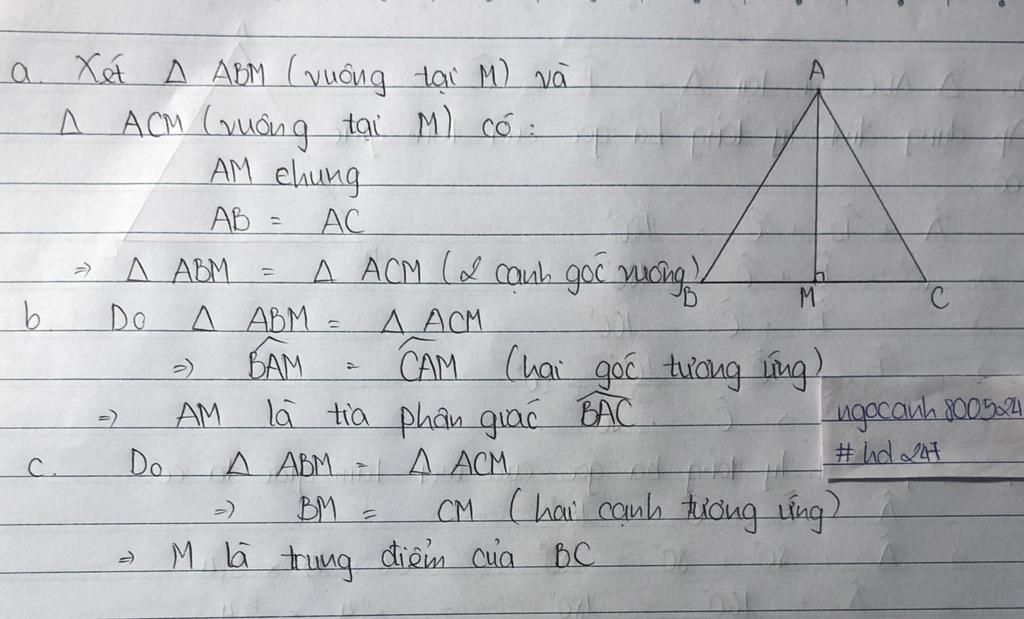 a. Xét Δ ABM (vuông tại M) và
Δ ACM (vuông tại M) có:
AM chung
AB = AC
⇒ Δ ABM = Δ ACM (2 cạnh góc vuông)
b Do Δ ABM = Δ ACM
⇒ \widehat{BAM} = \widehat{CAM} (hai góc tương ứng)
⇒ AM là tia phân giác \widehat{BAC}
c. Do Δ ABM = Δ ACM
⇒ BM = CM (hai cạnh tương ứng)
⇒ M là trung điểm của BC
A
B M C
ngocanh800524
# hd 247